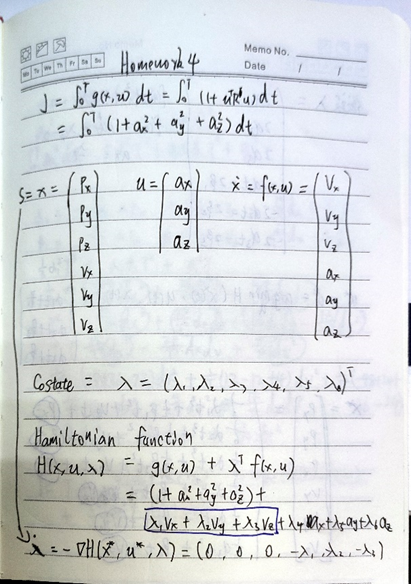 Memo No.
Mo Tu We Th Fr Sa Su
Date / /
Homework 4
J = ∫₀ᵀ g(x,u) dt = ∫₀ᵀ (1+uᵀRu) dt
= ∫₀ᵀ (1+ax²+ay²+az²) dt
S = x = (Px Py Pz Vx Vy Vz) u = (ax ay az) ẋ = f(x,u) = (Vx Vy Vz ax ay az)
Costate = λ = (λ₁, λ₂, λ₃, λ4, λ5, λ6)ᵀ
Hamiltonian function
H(x,u,λ) = g(x,u) + λᵀ f(x,u)
= (1+ax²+ay²+az²)+
λ₁Vx + λ₂Vy + λ₃Vz + λ4 ax+λ5ay+λ6az
λ̇ = -∇H(x*, u*, λ) = (0, 0, 0, -λ₁, -λ₂, -λ₃)